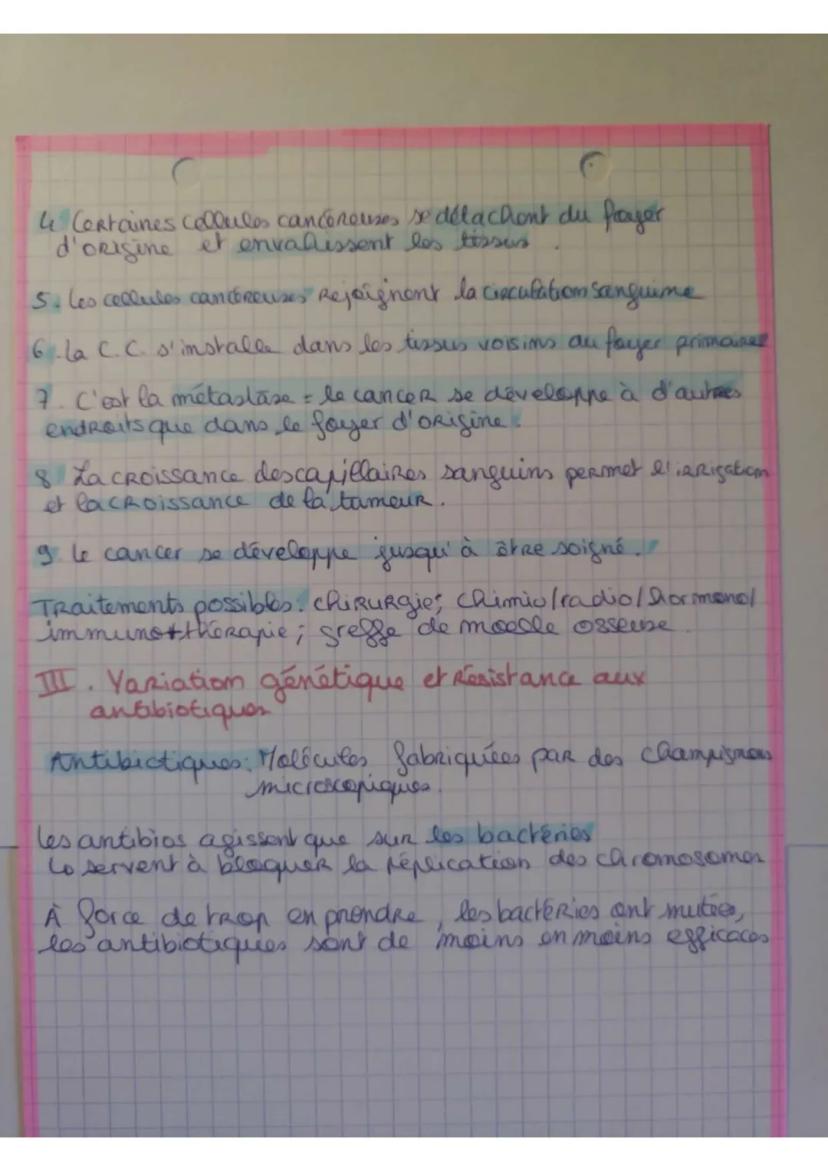 4 Certaines cellules cancéreuses se détachent du foyer
d'origine et envahissent les tissus.
5. Les cellules cancéreuses rejoignent la circulation sanguine
6. la C.C. s'installe dans les tissus voisins au foyer primaire
7. C'est la métastase = le cancer se développe à d'autres
endroits que dans le foyer d'origine.
8 La croissance des capillaires sanguins permet l'irrigation
et la croissance de la tumeur.
9 le cancer se développe jusqu'à être soigné.
Traitements possibles: chirurgie; chimio/radio/hormono/
immunothérapie; greffe de moelle osseuse
III. Variation génétique et résistance aux
antibiotiques
Antibiotiques: Molécules fabriquées par des champignons
microscopiques.
Les antibios agissent que sur les bactéries
↳ servent à bloquer la réplication des chromosomes
À force de trop en prendre, les bactéries ont mutées,
les antibiotiques sont de moins en moins efficaces